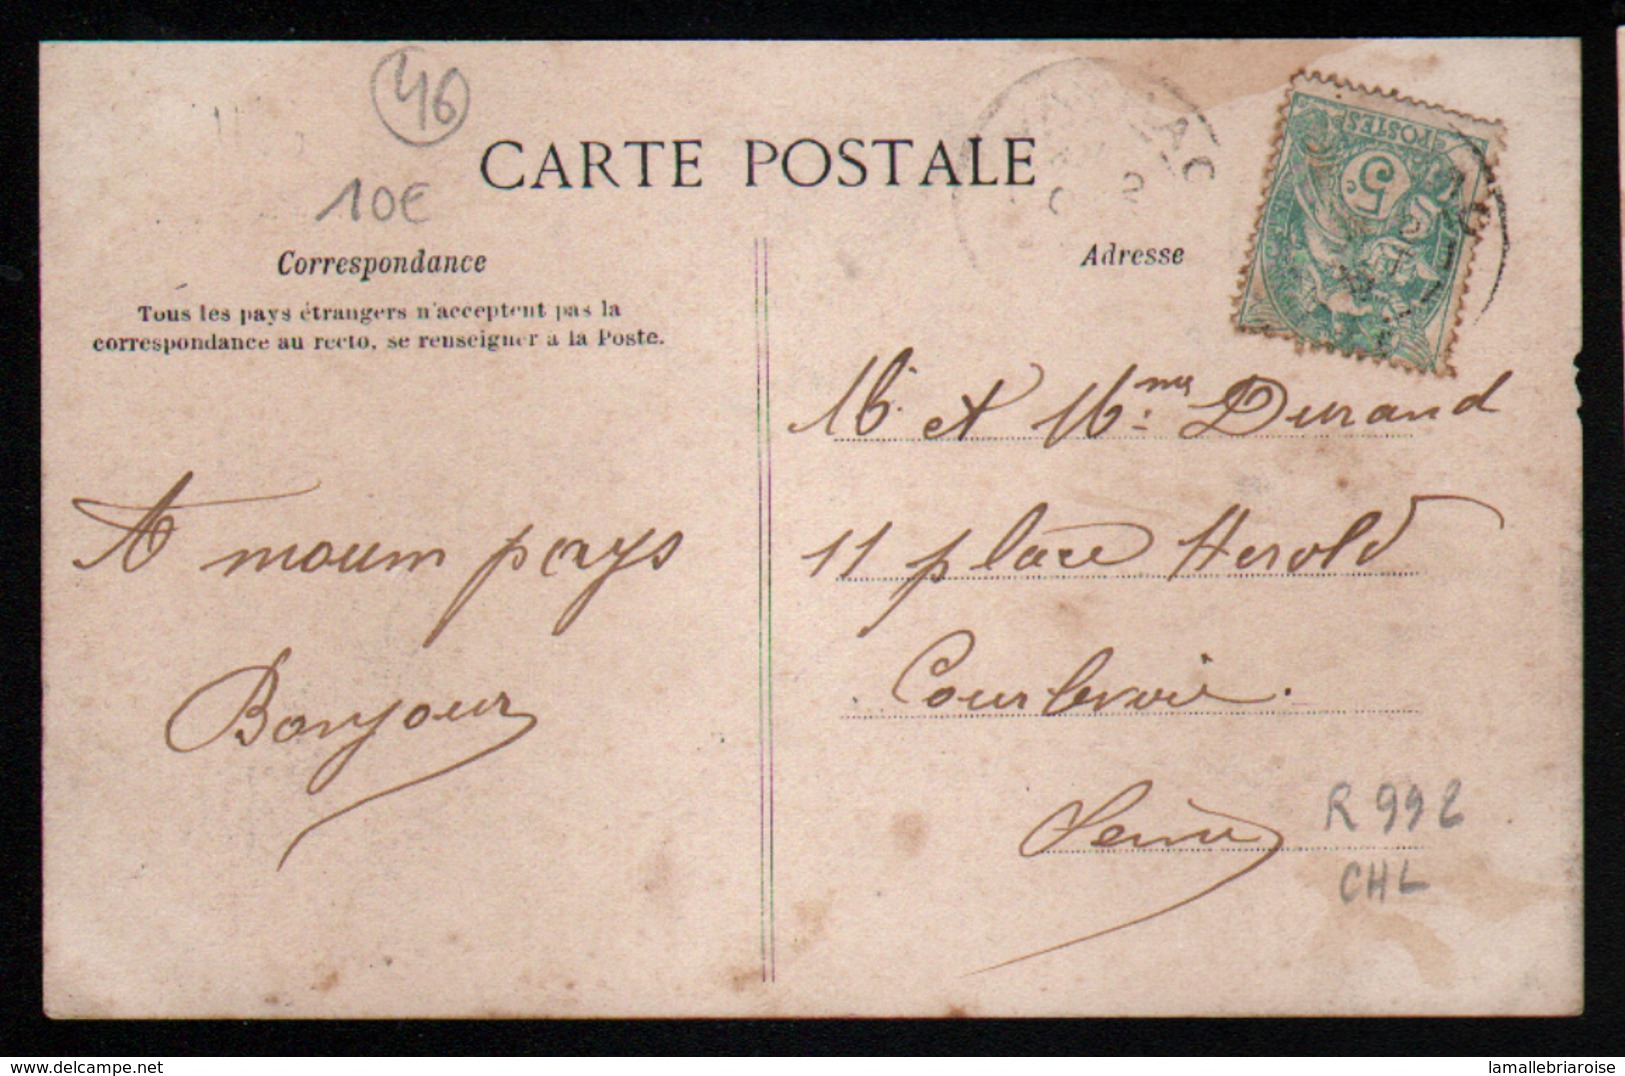 46
10€
CARTE POSTALE
Correspondance
Tous les pays étrangers n'acceptent pas la
correspondance au recto, se renseigner à la Poste.
A moum pays
Bonjour
Adresse
POSTES
5c
M. et Mme Durand
11 place Herold
Courbevoie.
Seine
R 992
CHL
delcampe.net
lamallebriaroise